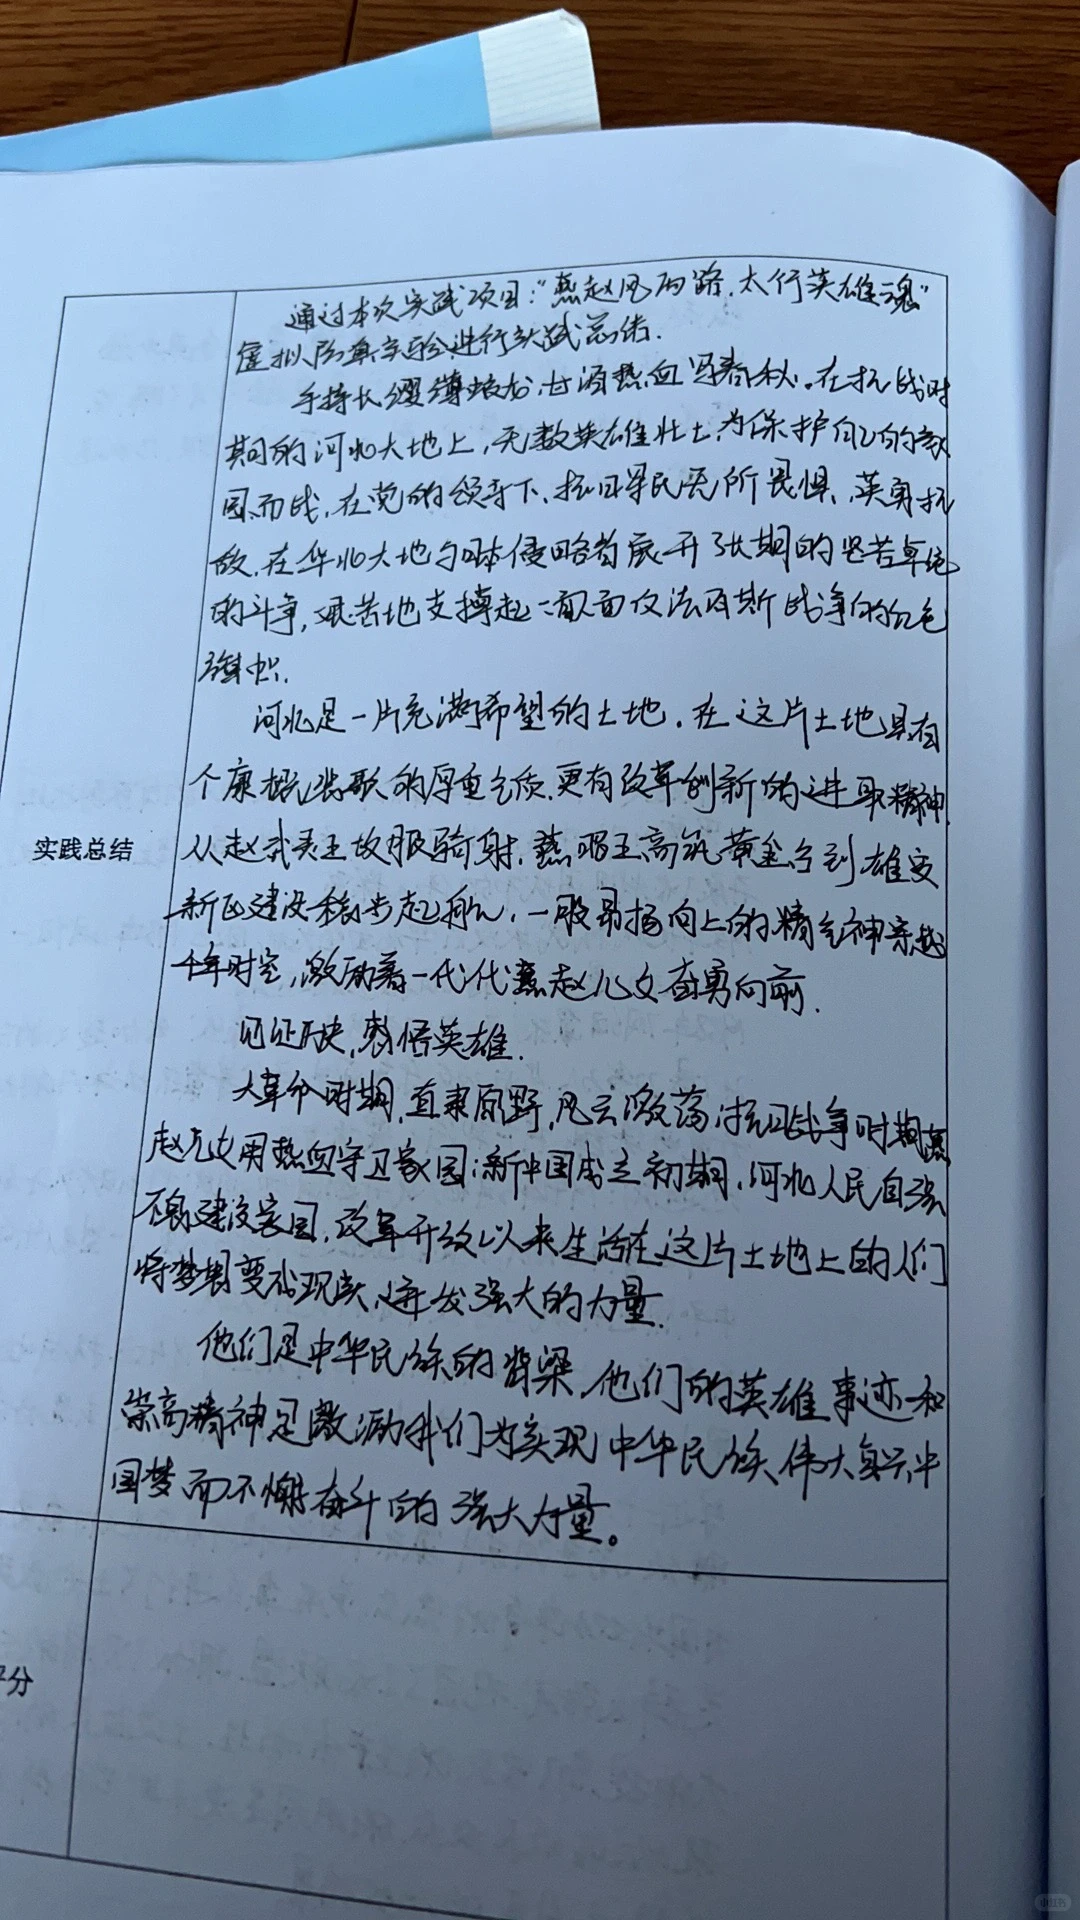 通过本次实践项目:"燕赵风雨路,太行英雄魂"
虚拟仿真实验进行实践总结.
手持长缨缚蛟龙,甘洒热血写春秋。在抗战时
期的河北大地上,无数英雄壮士,为保护自己的家
园而战,在党的领导下,抗日军民无所畏惧,英勇抗
敌,在华北大地与日本侵略者展开了长期的坚苦卓绝
的斗争,艰苦地支撑起一面反法西斯战争的红色
旗帜.
河北是一片充满希望的土地,在这片土地具有
个康概悲歌的厚重气质,更有改革创新的进取精神,
从赵武灵王故服骑射,燕昭王高筑黄金台到雄安
新区建设稳步起航,一股昂扬向上的精气神穿越
千年时空,激励着一代代燕赵儿女奋勇向前.
实践总结
见证历史,感悟英雄.
大革命时期,直隶原野,风云激荡;抗日战争时期燕
赵儿女用热血守卫家园;新中国成立初期,河北人民自强
不息建设家园,改革开放以来生活在这片土地上的人们
将梦想变成现实,迸发强大的力量.
他们是中华民族的脊梁,他们的英雄事迹和
崇高精神是激励我们为实现中华民族伟大复兴中
国梦而不懈奋斗的强大力量。
评分